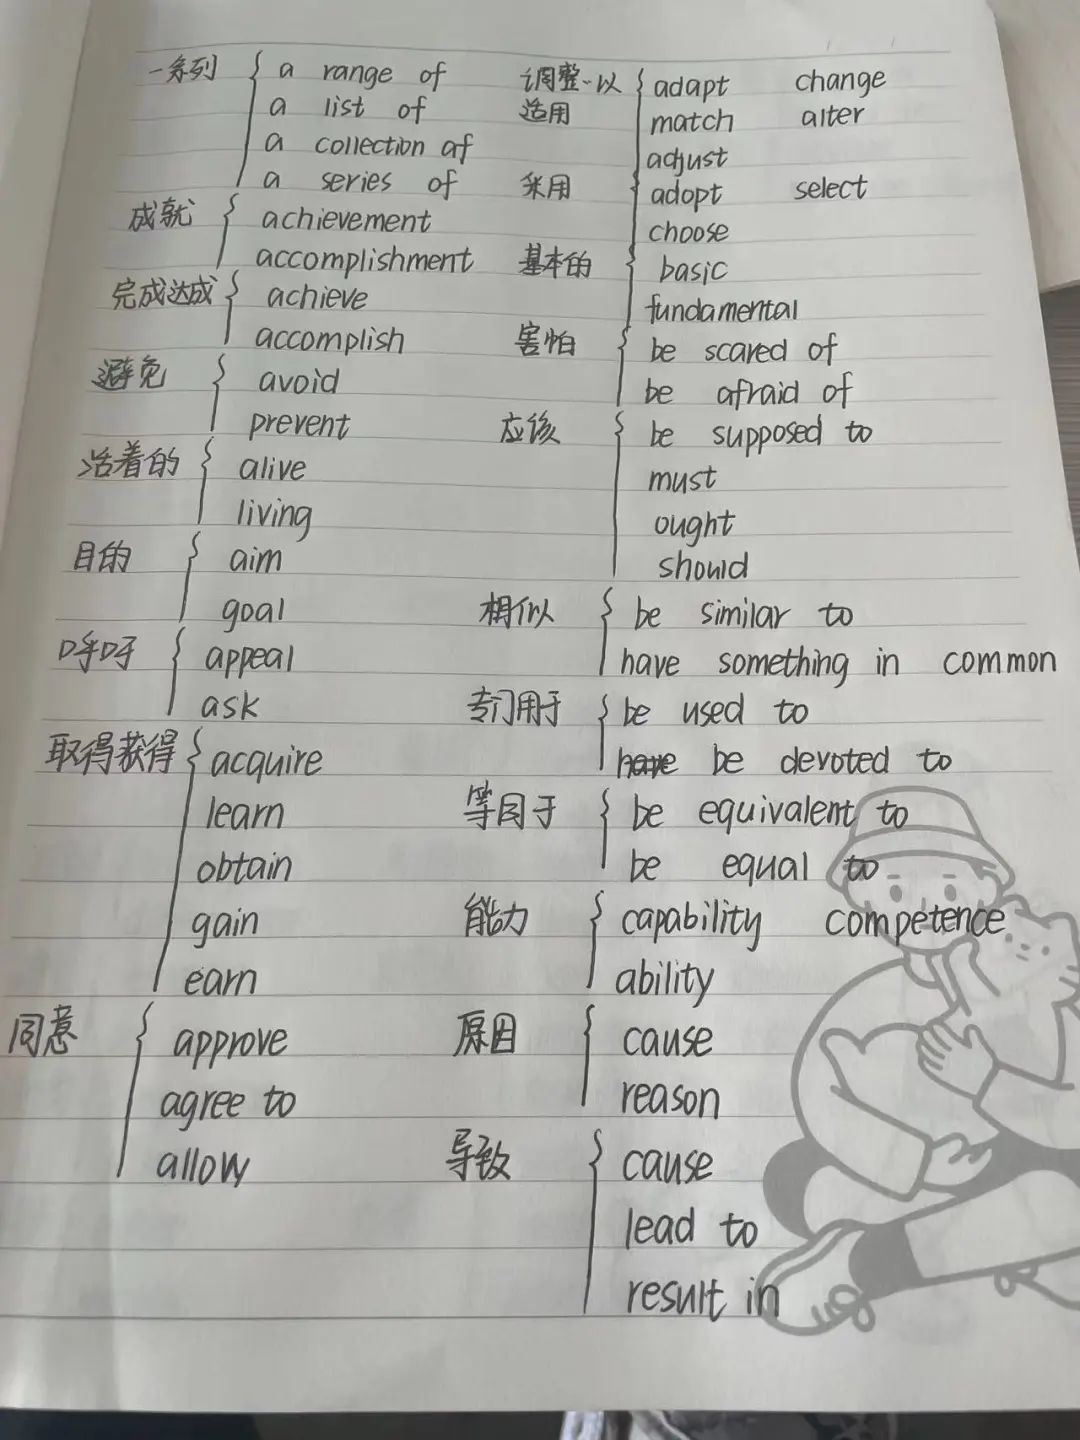 一系列 a range of
a list of
a collection of
a series of
成就 achievement
accomplishment
完成达成 achieve
accomplish
避免 avoid
prevent
活着的 alive
living
目的 aim
goal
呼吁 appeal
ask
取得获得 acquire
learn
obtain
gain
earn
同意 approve
agree to
allow
调整..以 adapt change
适用 match alter
adjust
采用 adopt select
choose
基本的 basic
fundamental
害怕 be scared of
be afraid of
应该 be supposed to
must
ought
should
相似 be similar to
have something in common
专门用于 be used to
be devoted to
等同于 be equivalent to
be equal to
能力 capability competence
ability
原因 cause
reason
导致 cause
lead to
result in